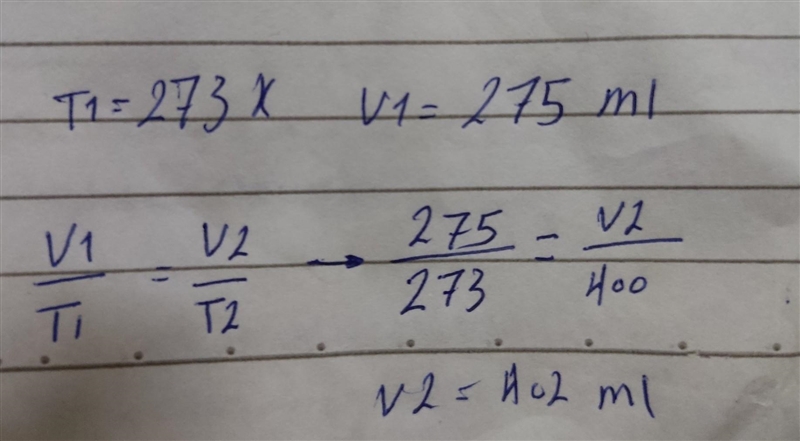 T1 = 273 K V1 = 275 ml
V1/T1 = V2/T2 → 275/273 = V2/400
V2 = 402 ml